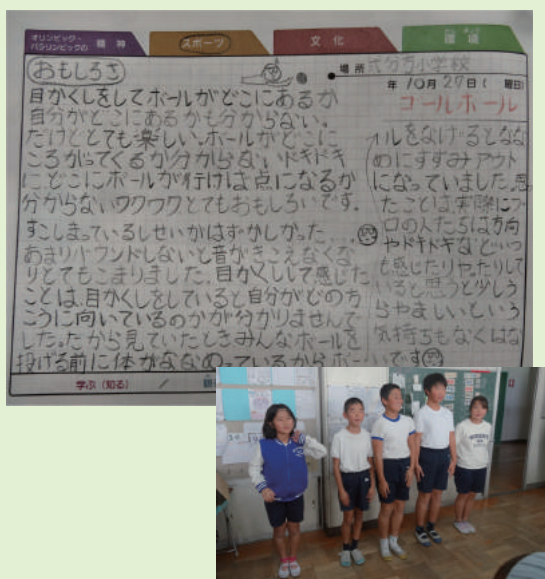 オリンピック・
パラリンピックの 精神
スポーツ
文化
環境
おもしろさ
場所 弐分方小学校
年 10月 27日( 曜日)
ゴールボール
目かくしをしてボールがどこにあるか
自分がどこにあるかも分からない。
だけどとても楽しい。ボールがどこに
ころがってくるか分からないドキドキ
にどこにボールが行けば点になるか
分からないワクワクとてもおもしろいです。
すこしまっているしせいがはずかしかった。
あまりバウンドしないと音がきこえなくな
りとてもこまりました。目かくしして感じた
ことは、目かくしをしていると自分がどの方
こうに向いているのかが分かりませんで
した。だから見ていたときみんなボールを
投げる前に体がななめっているからボー
ルをなげるとなな
めにすすみアウト
になっていました。思っ
たことは実際にプ
ロの人たちは方向
やドキドキなどいつ
も感じたりやったりして
いると思うと少しう
らやましいという
気持ちもなくはな
いです
学ぶ(知る)